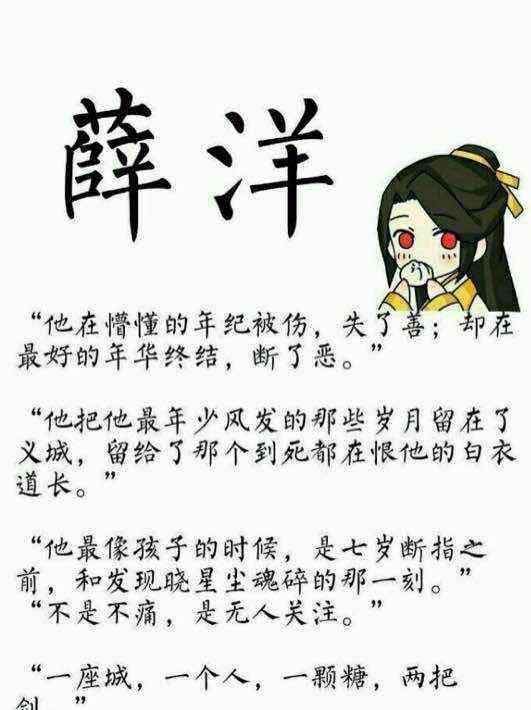 薛洋
“他在懵懂的年纪被伤，失了善；却在
最好的年华终结，断了恶。”
“他把他最年少风发的那些岁月留在了
义城，留给了那个到死都在恨他的白衣
道长。”
“他最像孩子的时候，是七岁断指之
前，和发现晓星尘魂碎的那一刻。”
“不是不痛，是无人关注。”
“一座城，一个人，一颗糖，两把
剑。”